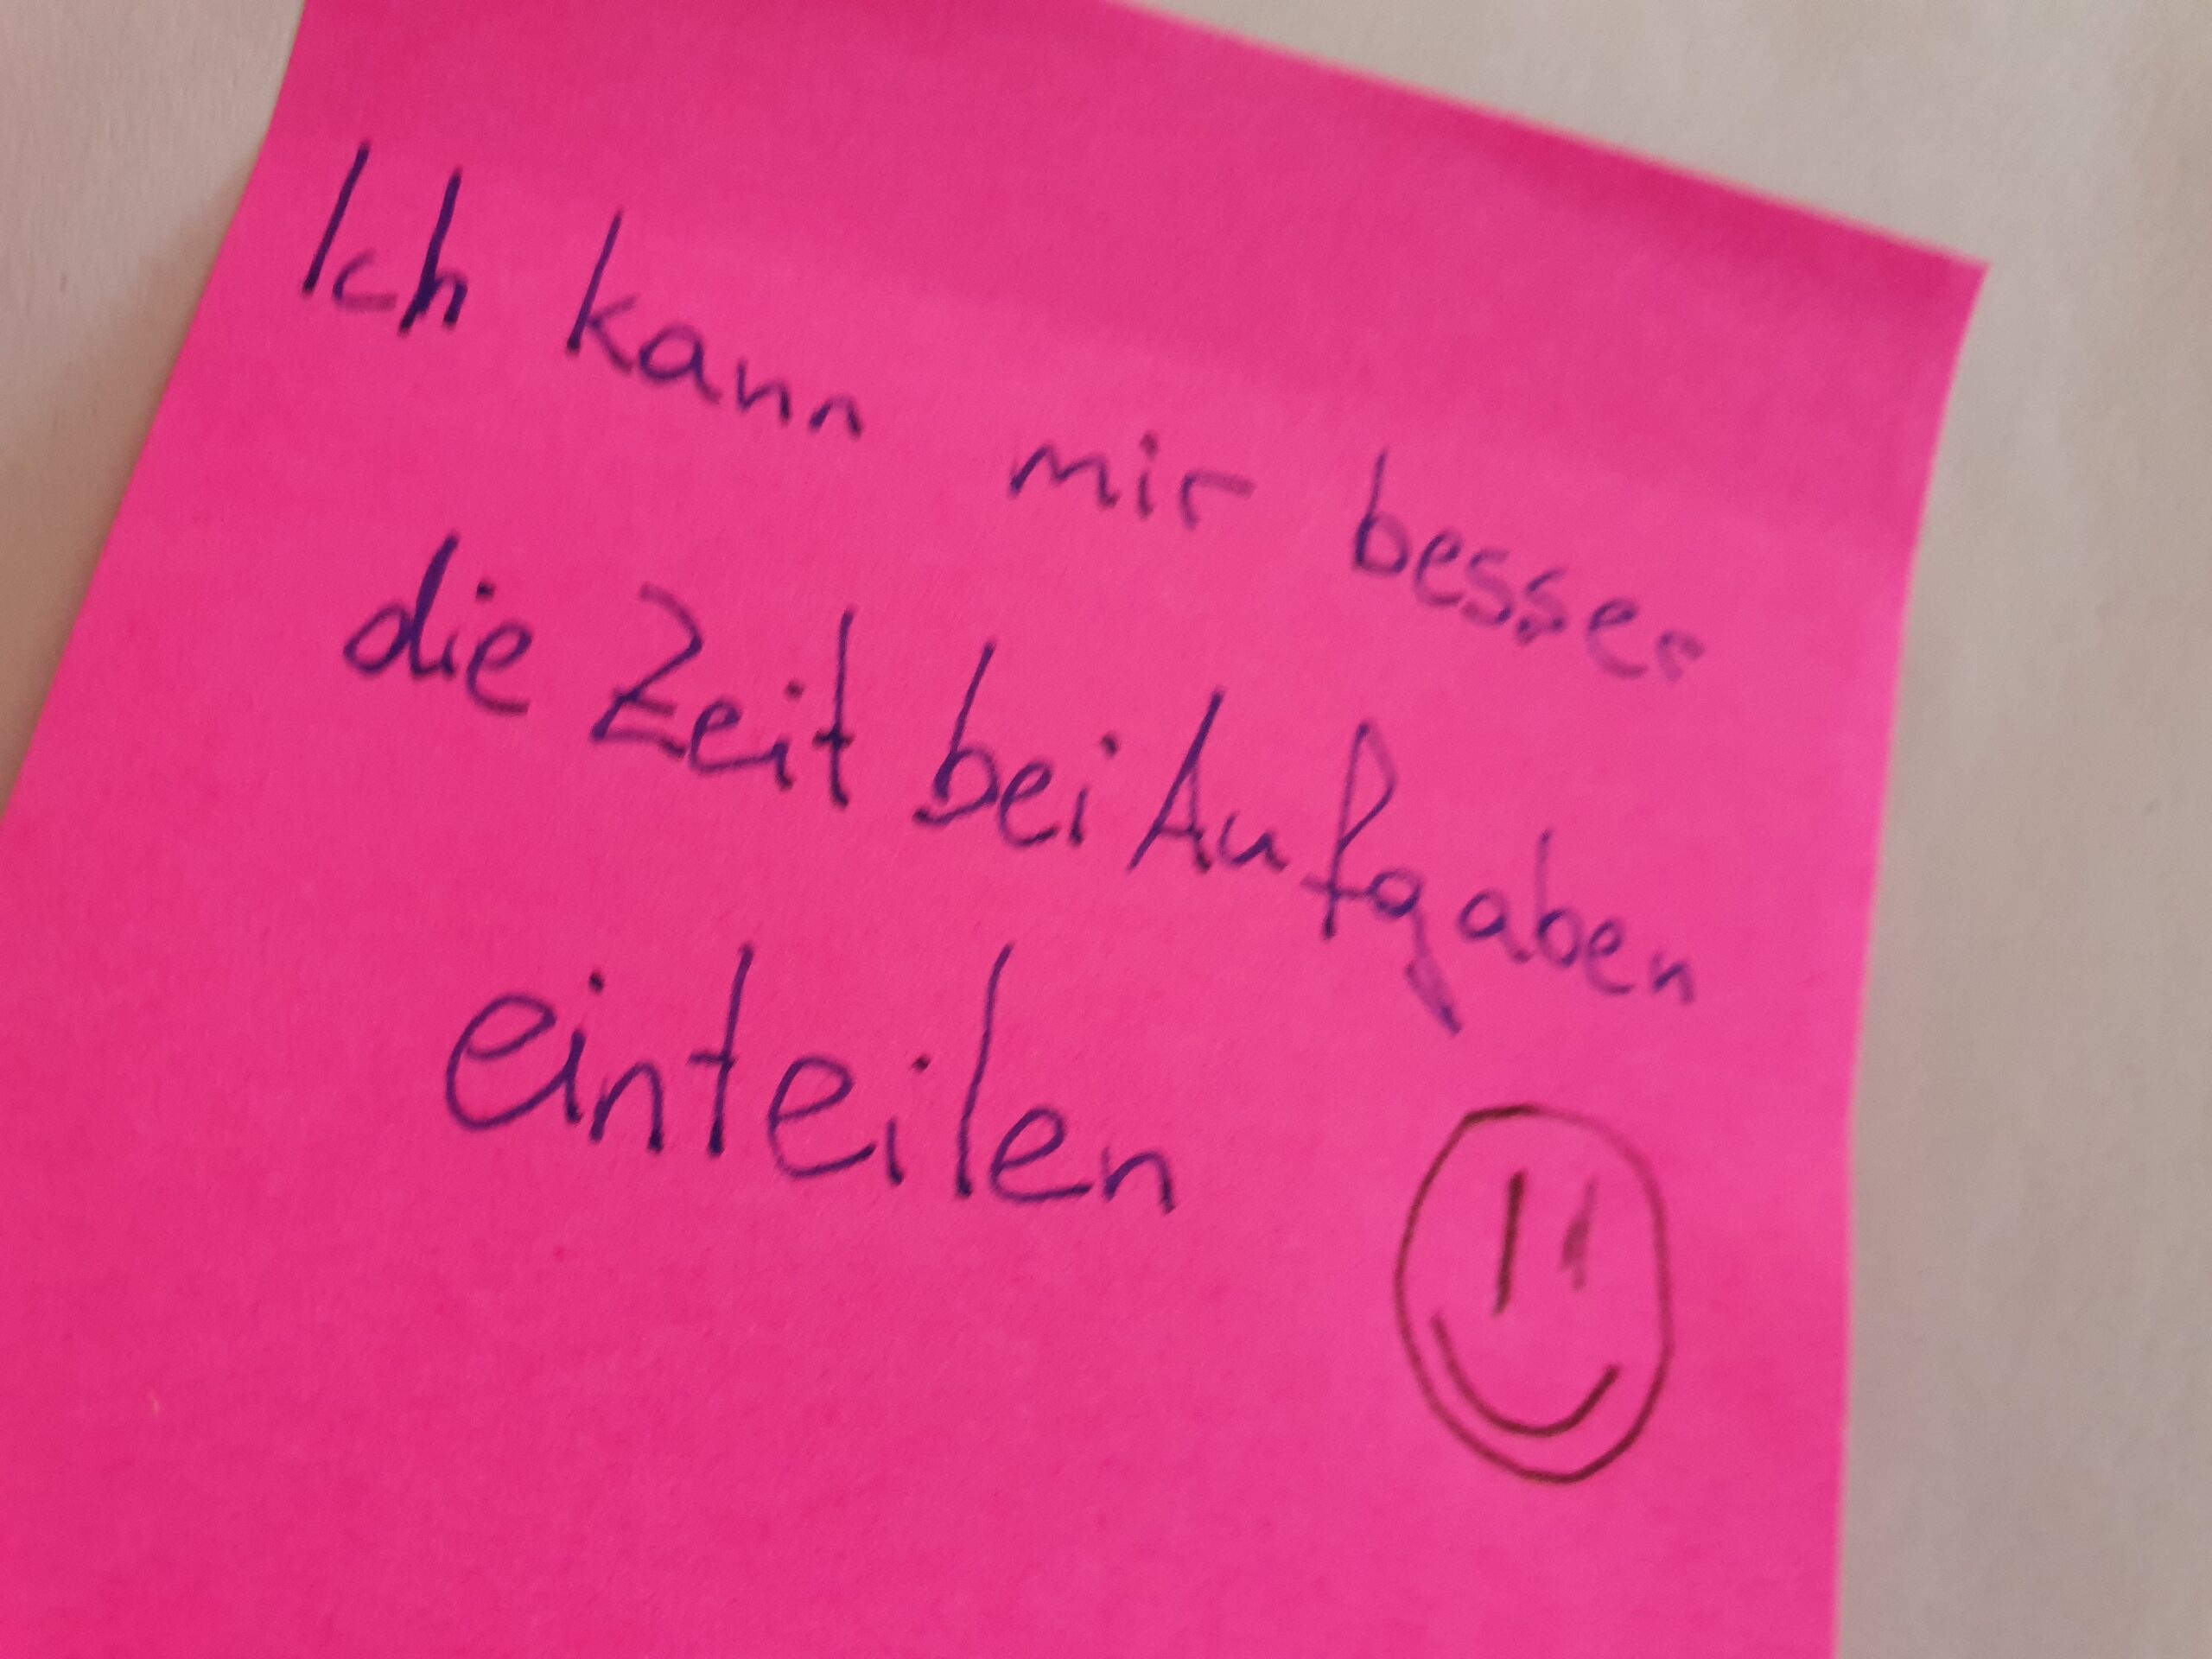 Ich kann mir besser
die Zeit bei Aufgaben
einteilen